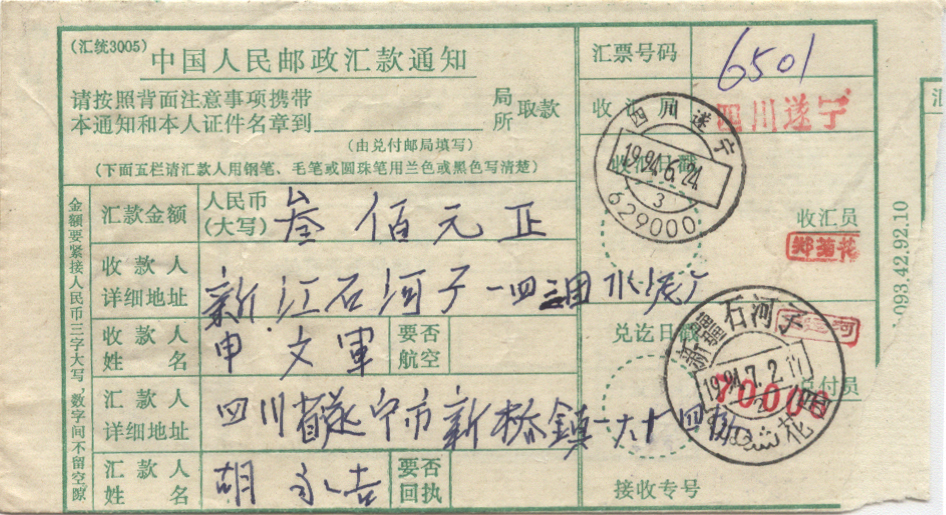 (汇统3005)
中国人民邮政汇款通知
请按照背面注意事项携带
本通知和本人证件名章到 局所 取款
(由兑付邮局填写)
(下面五栏请汇款人用钢笔、毛笔或圆珠笔用兰色或黑色写清楚)
金额要紧接人民币三字大写，数字间不留空隙
汇款金额 人民币(大写) 叁佰元正
收款人详细地址 新江石河子一四三团水泥厂
收款人姓名 申文軍 要否航空
汇款人详细地址 四川省遂宁市新桥鎮一六十四
汇款人姓名 胡永吉 要否回执
汇票号码 6501
收汇局 四川遂宁
收汇日戳
四川遂宁
1994.6.24
3
629000
收汇员
郑菊花
兑讫日戳
新疆石河子
1994.7.2
70008
兑付员
接收专号
093.42.92.10
汇